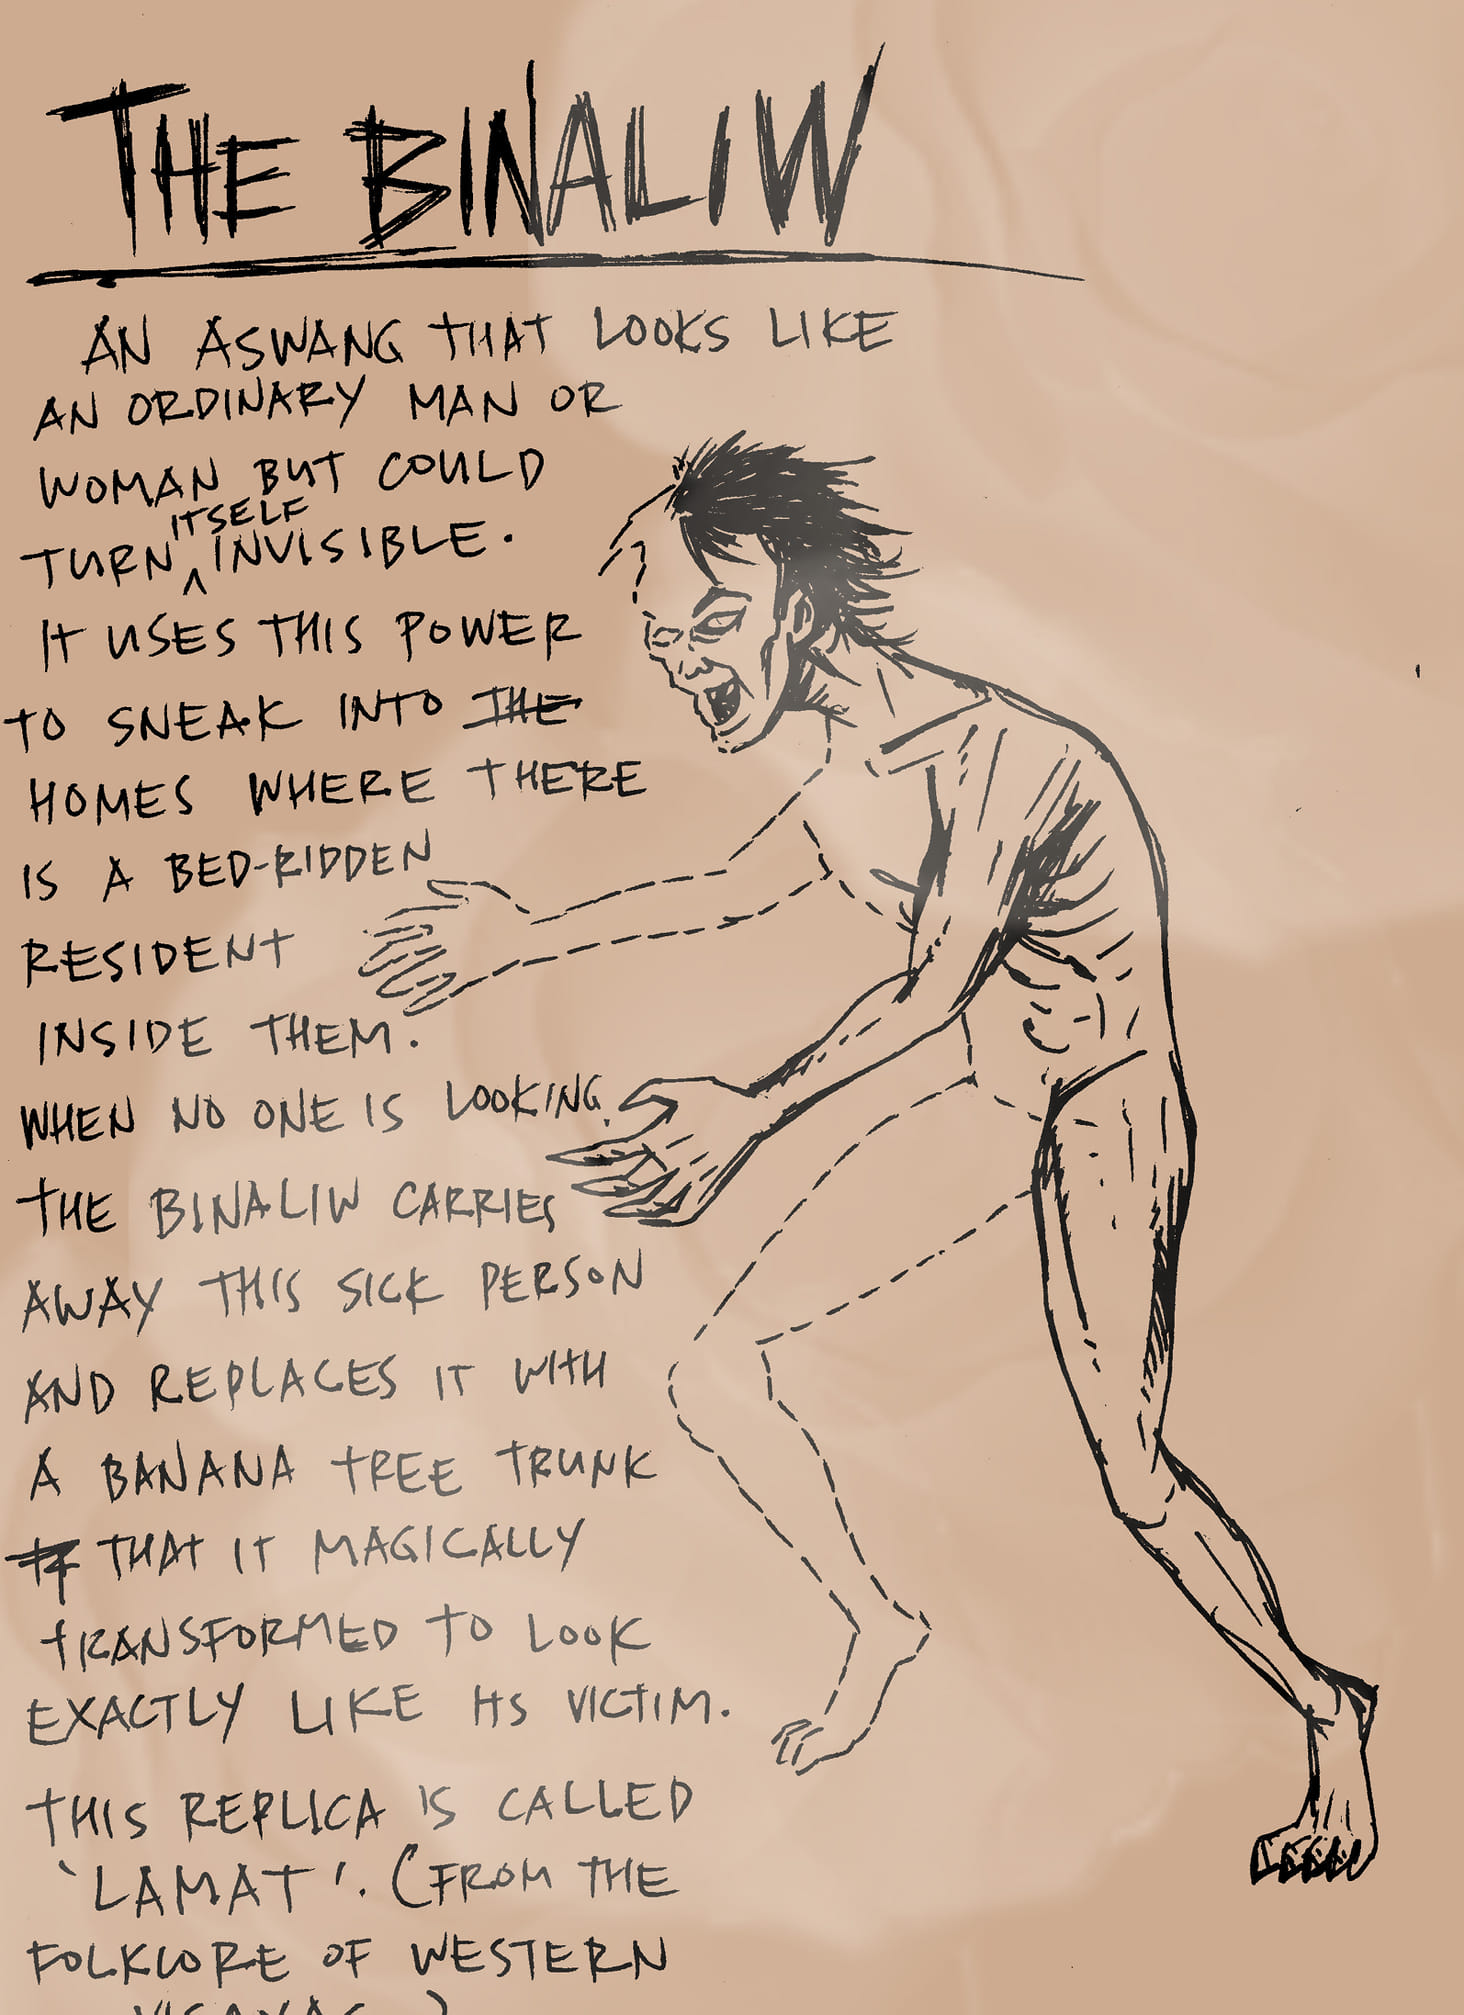 THE BINALIW
AN ASWANG THAT LOOKS LIKE
AN ORDINARY MAN OR
WOMAN BUT COULD
TURN ITSELF INVISIBLE.
IT USES THIS POWER
TO SNEAK INTO THE
HOMES WHERE THERE
IS A BED-RIDDEN
RESIDENT
INSIDE THEM.
WHEN NO ONE IS LOOKING,
THE BINALIW CARRIES
AWAY THIS SICK PERSON
AND REPLACES IT WITH
A BANANA TREE TRUNK
THAT IT MAGICALLY
TRANSFORMED TO LOOK
EXACTLY LIKE ITS VICTIM.
THIS REPLICA IS CALLED
'LAMAT'. (FROM THE
FOLKLORE OF WESTERN
VISAYAS.)